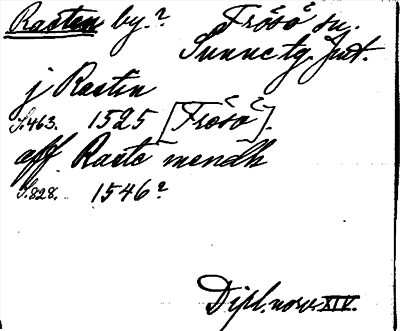 Rasten by.? Frösö sn.
Sunne tg. Jmt.
j Rastin
S.463. 1525 [Frösö].
aff Raste mendh
S.828. 1546?
Dipl. norv. XIV.